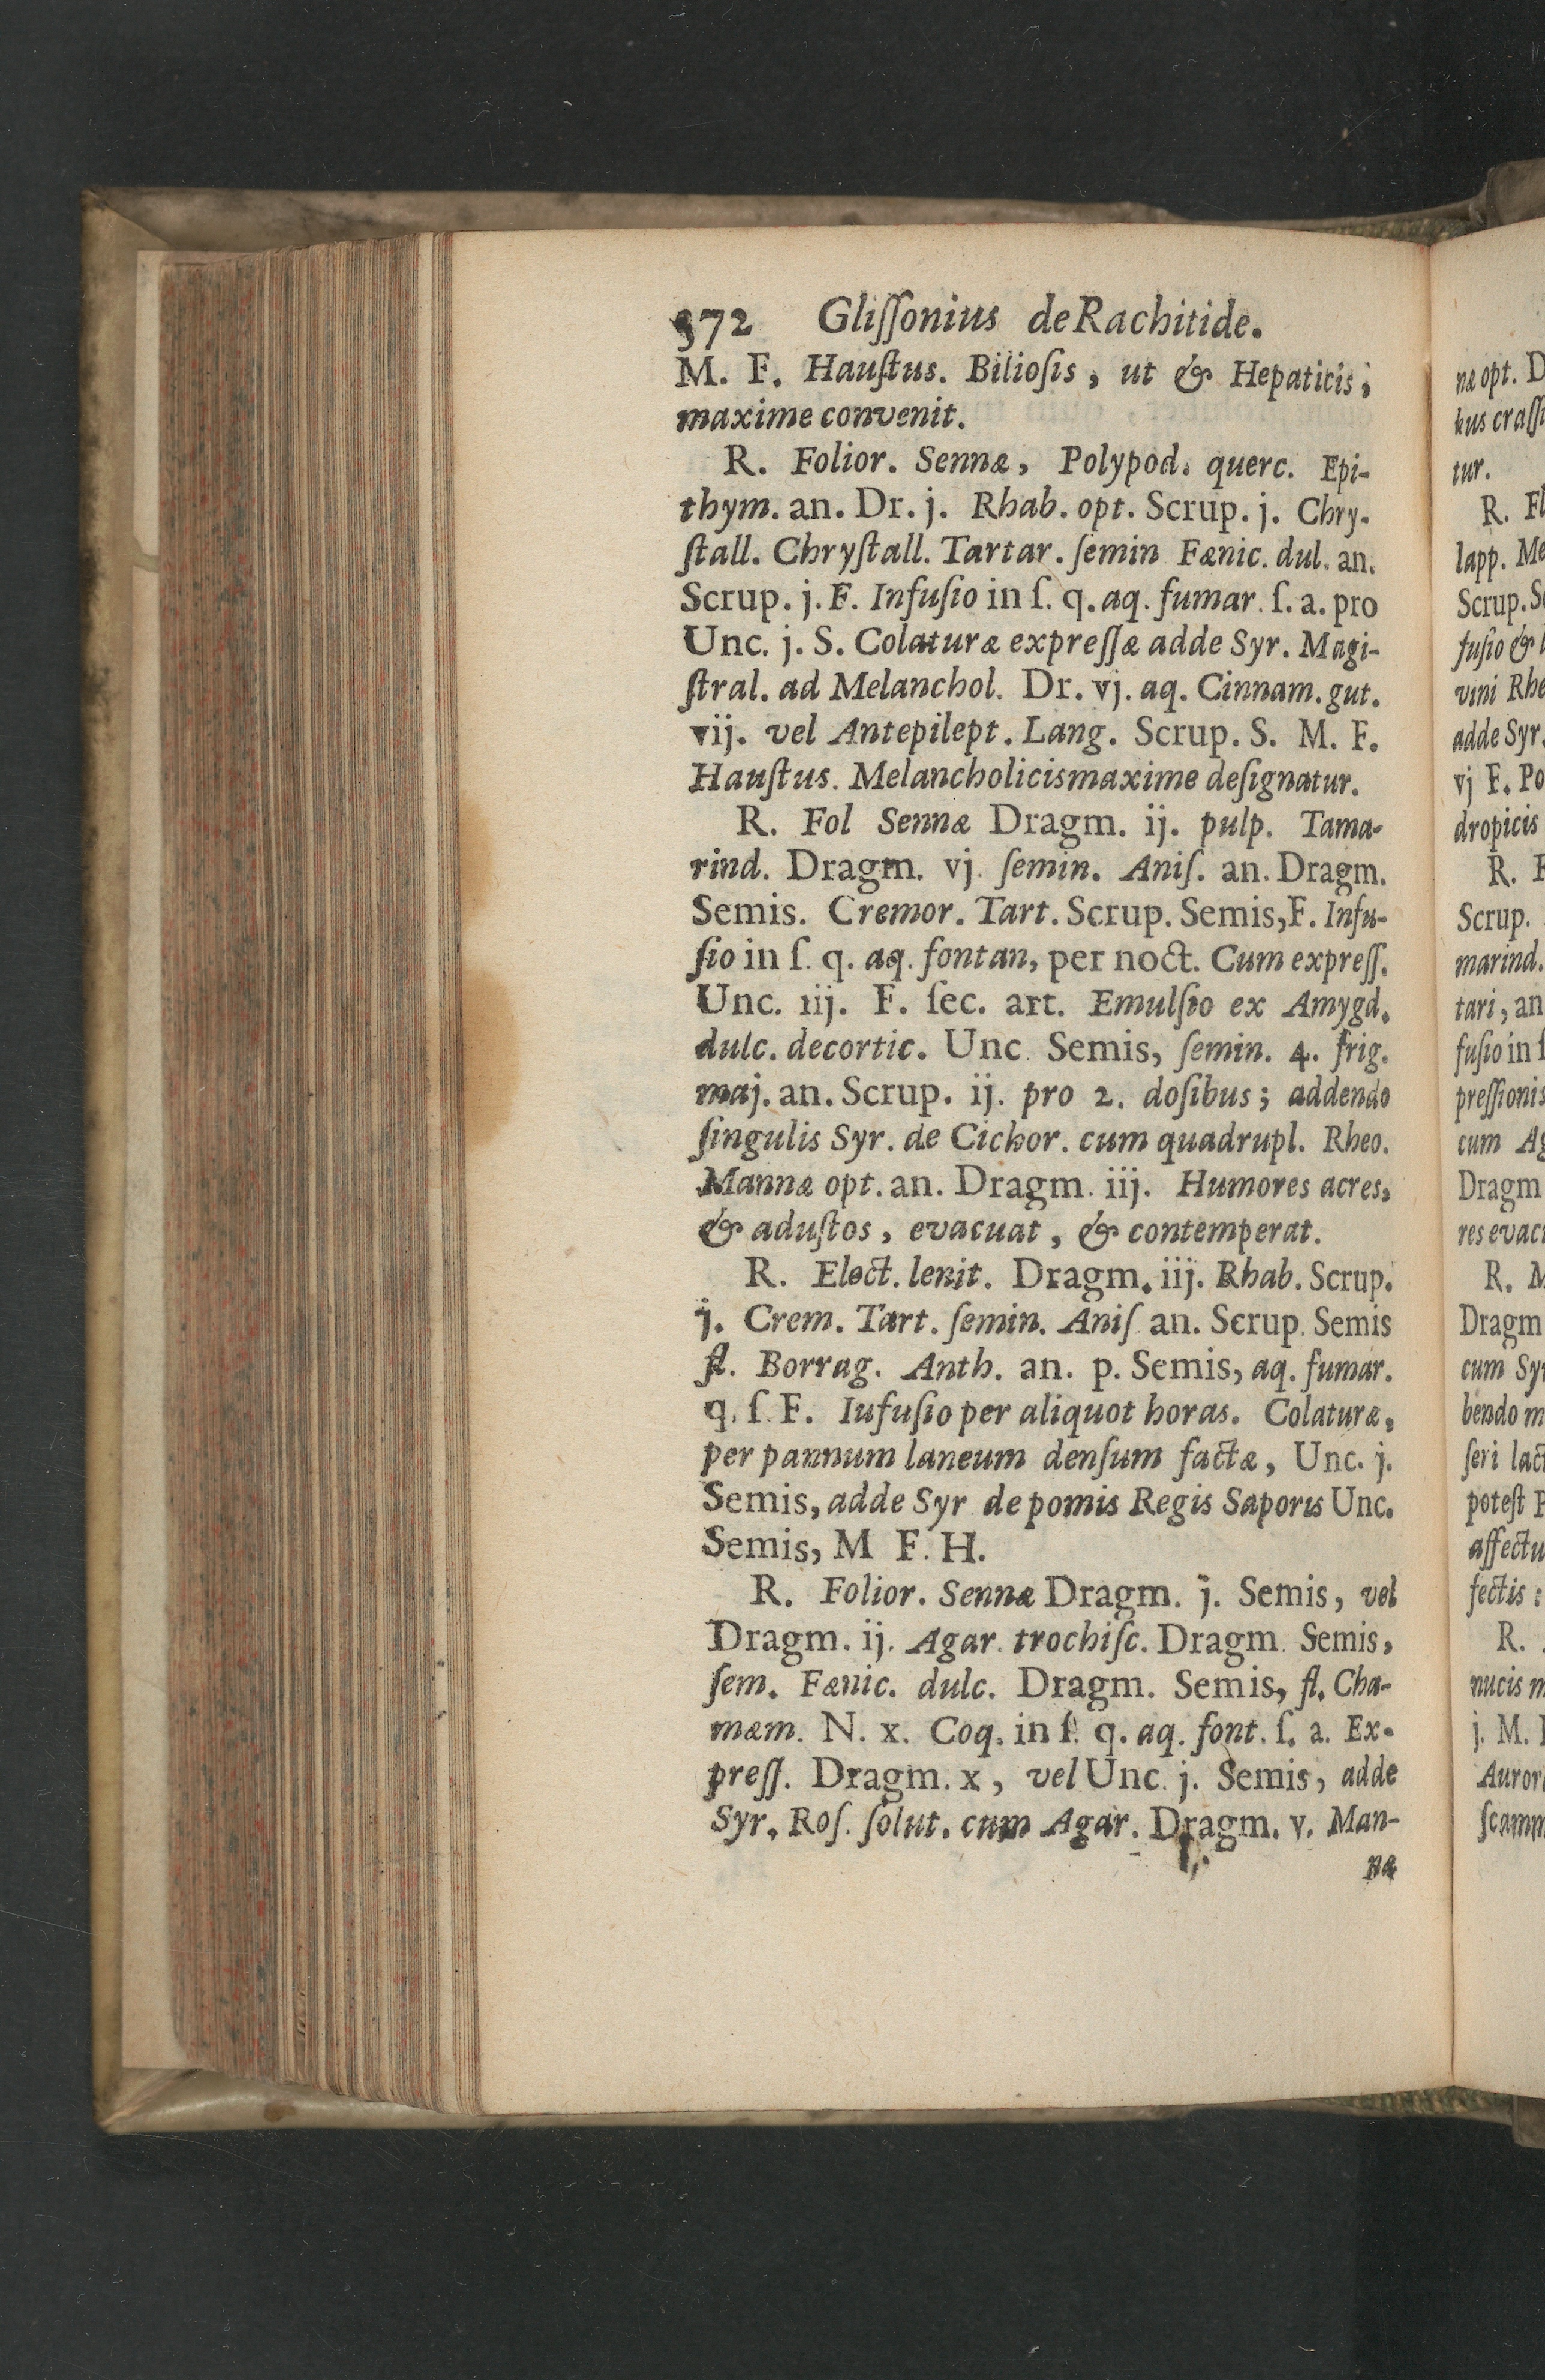 372 Gliſſonius de Rachitide.
M. F. Hauſtus. Bilioſis, ut & Hepaticis,
maxime convenit.
R. Folior. Sennæ, Polypod. querc. Epi-
thym. an. Dr. j. Rhab. opt. Scrup. j. Chry-
ſtall. Chryſtall. Tartar. ſemin Fænic. dul. an.
Scrup. j. F. Infuſio in ſ. q. aq. fumar. ſ. a. pro
Unc. j. S. Colaturæ expreſſæ adde Syr. Magi-
ſtral. ad Melanchol. Dr. vj. aq. Cinnam. gut.
vij. vel Antepilept. Lang. Scrup. S. M. F.
Hauſtus. Melancholicis maxime deſignatur.
R. Fol Sennæ Dragm. ij. pulp. Tama-
rind. Dragm. vj. ſemin. Aniſ. an. Dragm.
Semis. Cremor. Tart. Scrup. Semis, F. Infu-
ſio in ſ. q. aq. fontan, per noct. Cum expreſſ.
Unc. iij. F. ſec. art. Emulſio ex Amygd.
dulc. decortic. Unc Semis, ſemin. 4. frig.
maj. an. Scrup. ij. pro 2. doſibus; addendo
ſingulis Syr. de Cichor. cum quadrupl. Rheo.
Mannæ opt. an. Dragm. iij. Humores acres,
& aduſtos, evacuat, & contemperat.
R. Elect. lenit. Dragm. iij. Rhab. Scrup.
j. Crem. Tart. ſemin. Aniſ an. Scrup. Semis
fl. Borrag. Anth. an. p. Semis, aq. fumar.
q. ſ. F. Iufuſio per aliquot horas. Colaturæ,
per pannum laneum denſum factæ, Unc. j.
Semis, adde Syr de pomis Regis Saporis Unc.
Semis, M F. H.
R. Folior. Sennæ Dragm. j. Semis, vel
Dragm. ij. Agar. trochiſc. Dragm. Semis,
ſem. Fænic. dulc. Dragm. Semis, fl. Cha-
mæm. N. x. Coq. in ſ. q. aq. font. ſ. a. Ex-
preſſ. Dragm. x, vel Unc. j. Semis, adde
Syr. Roſ. ſolut. cum Agar. Dragm. v. Man-
næ
næ opt. D
tur.
R. Fl
lapp. Me
Scrup. S
fuſio &
vini Rhe
adde Syr.
vj F. Po
dropicis
R.
Scrup.
marind.
tari, an
fuſio in
preſſionis
cum Ag
Dragm
res evac
R. M
Dragm
cum Sy
bendo m
ſeri lact
poteſt
affectu
fectis:
R.
nucis m
j. M.
Auror
ſcamm